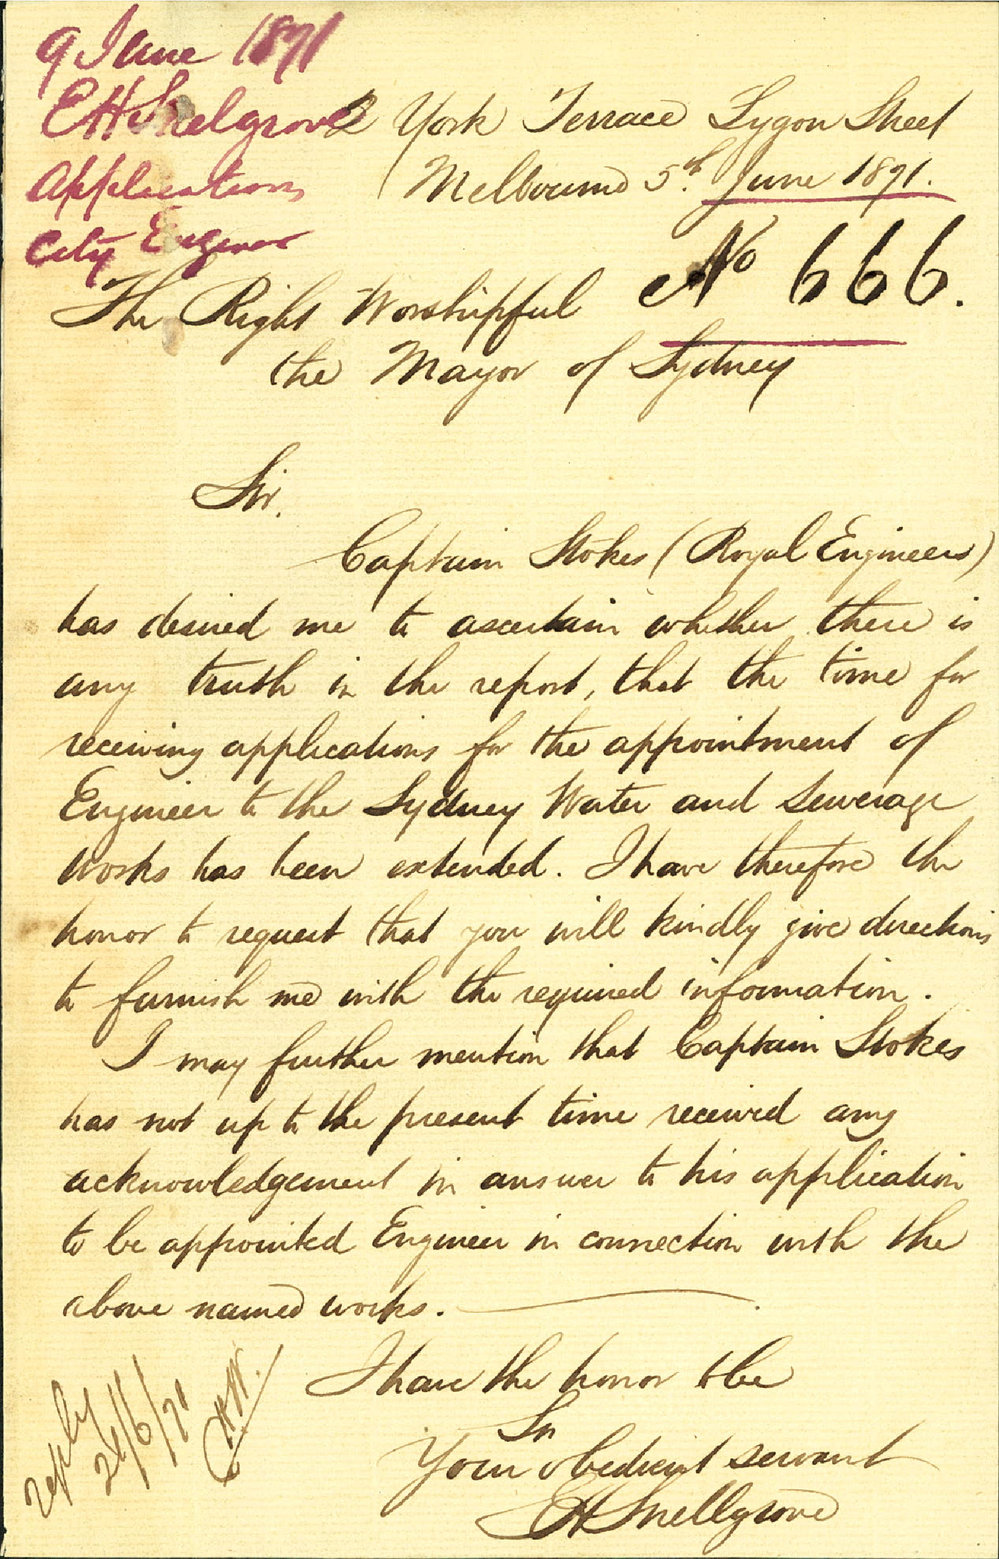 9 June 1871
EH Snelgrove
Applications
City Engineer
2 York Terrace Lygon Street
Melbourne 5th June 1871.
No 666.
The Right Worshipful
the Mayor of Sydney
Sir.
Captain Stokes (Royal Engineers)
has desired me to ascertain whether there is
any truth in the report, that the time for
receiving applications for the appointment of
Engineer to the Sydney Water and Sewerage
Works has been extended. I have therefore the
honor to request that you will kindly give directions
to furnish me with the required information.
I may further mention that Captain Stokes
has not up to the present time received any
acknowledgement in answer to his application
to be appointed Engineer in connection with the
above named works.
I have the honor to be
Sir
Your obedient servant
EH Snellgrove
reply
26/6/71